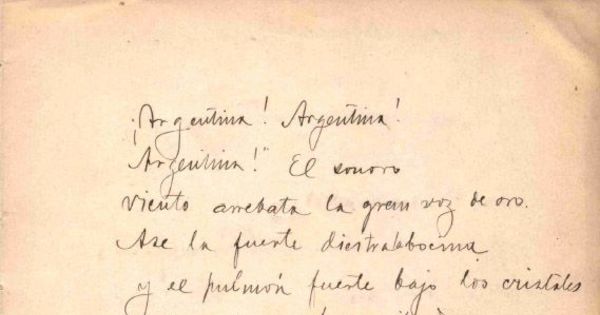 ¡Argentina! Argentina!
¡Argentina!" El sonoro
viento arrebata la gran voz de oro.
Ase la fuerte diestra la bocina
y el pulmón fuerte bajo los cristales